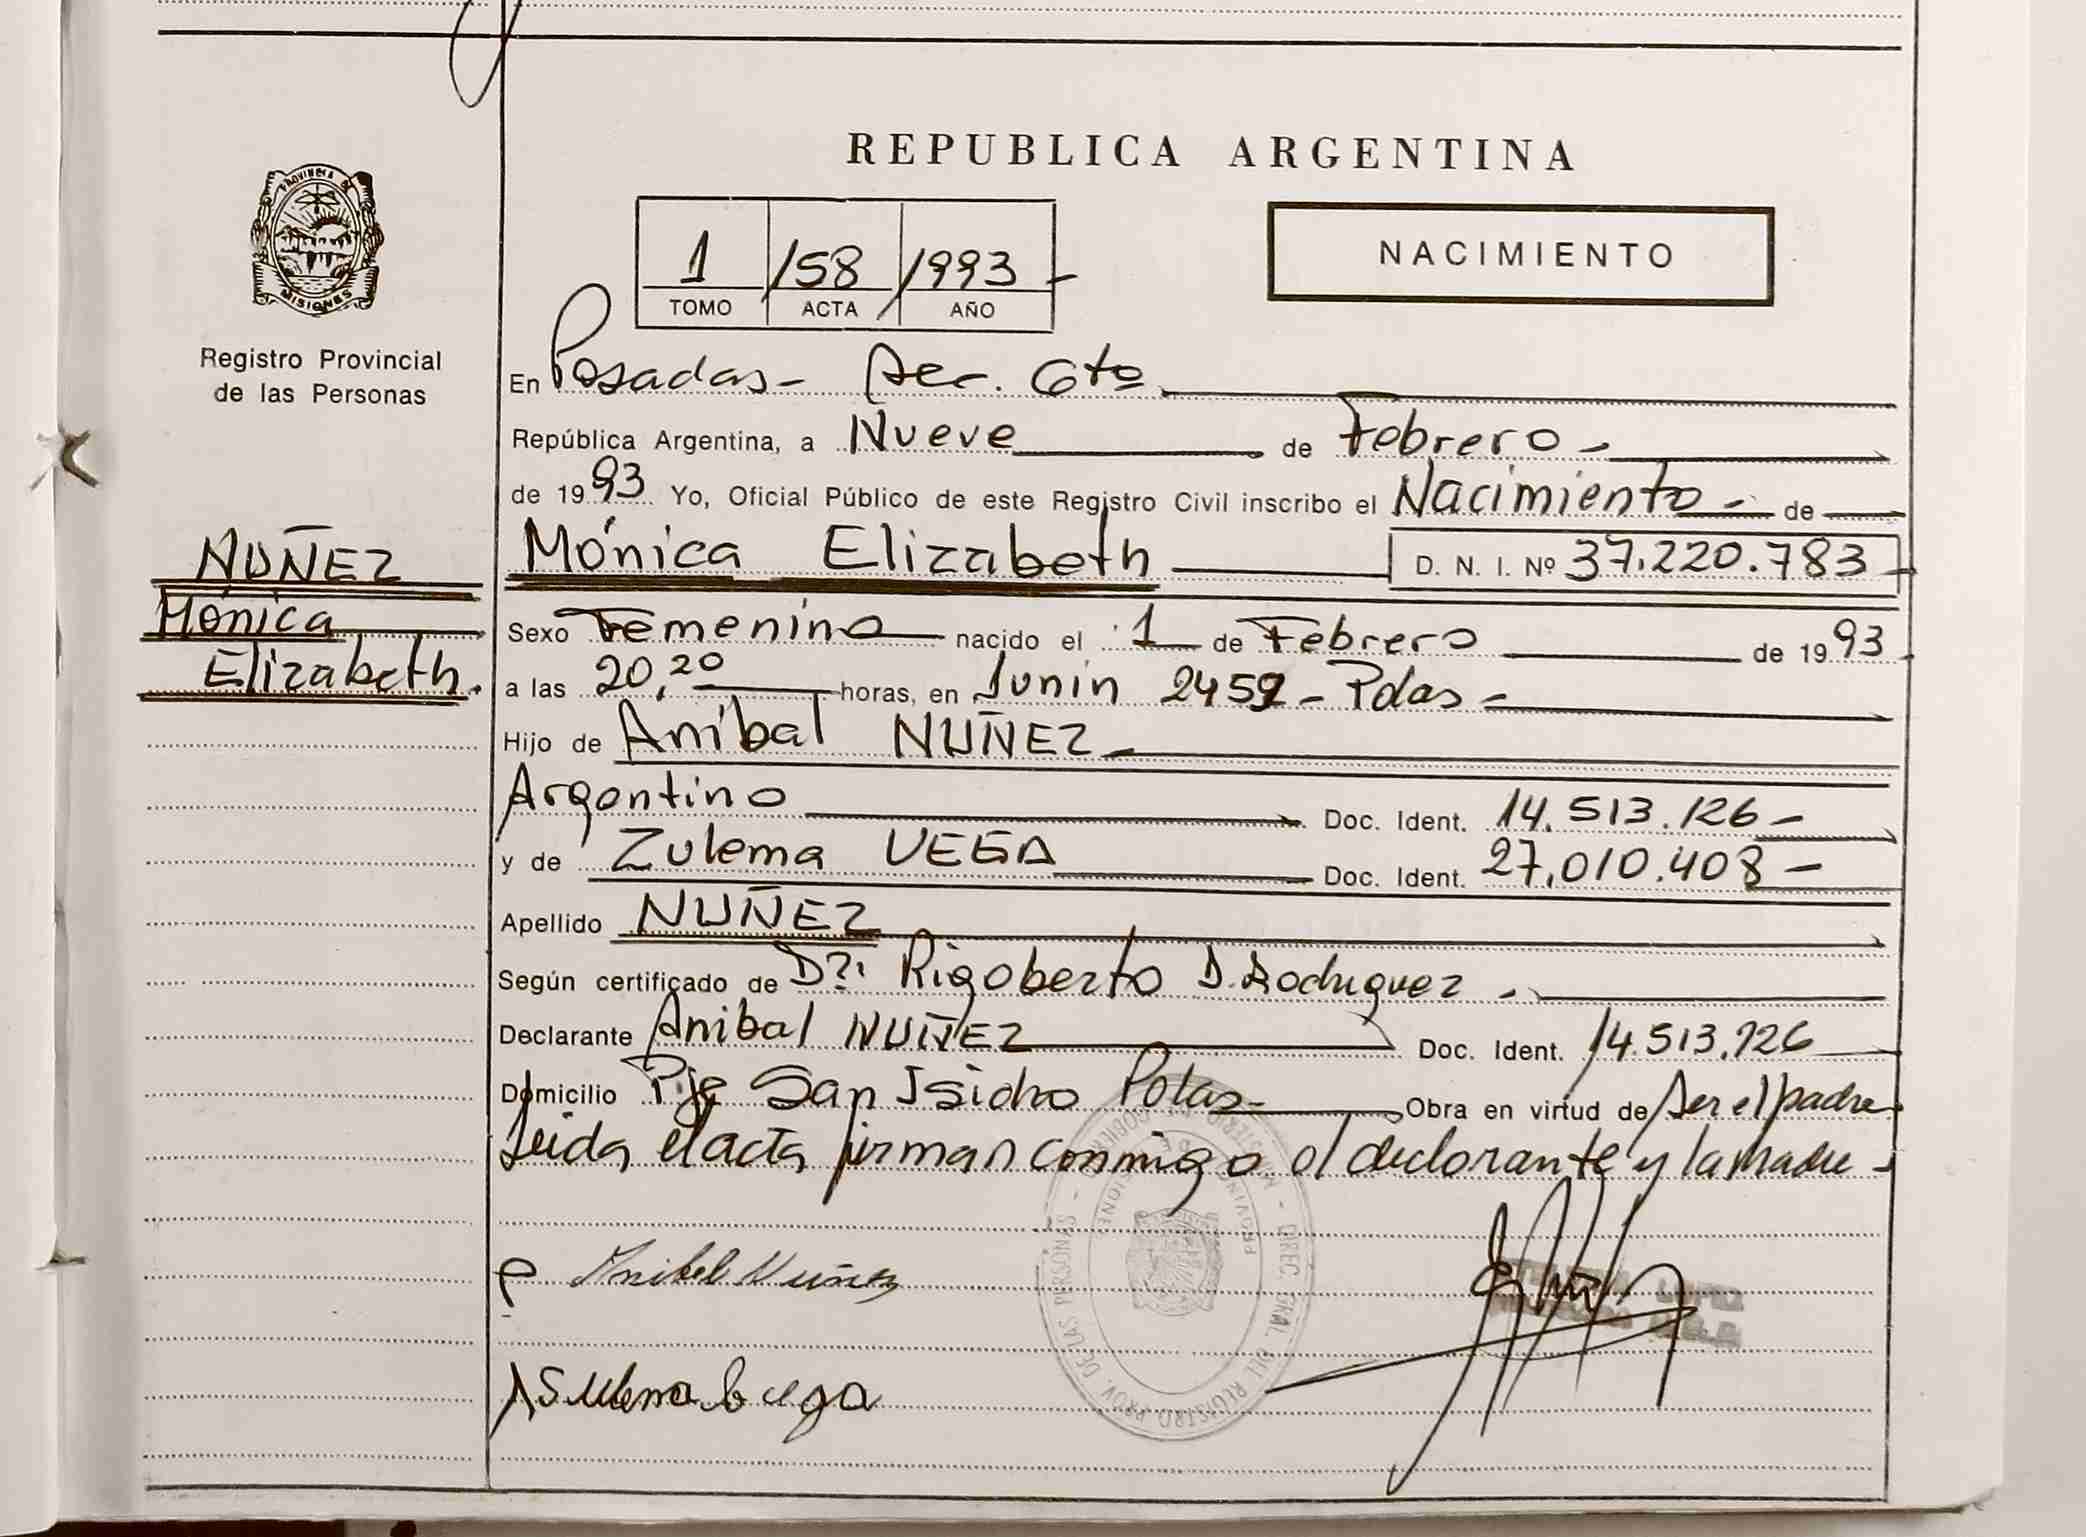 REPUBLICA ARGENTINA
PROVINCIA DE
MISIONES
Registro Provincial
de las Personas
1 /58 /1993
TOMO ACTA AÑO
NACIMIENTO
En Posadas - Sec. 6ta
República Argentina, a Nueve de Febrero -
de 1993 Yo, Oficial Público de este Registro Civil inscribo el Nacimiento - de
NUÑEZ
Mónica
Elizabeth.
Mónica Elizabeth D. N. I. Nº 37.220.783
Sexo Femenino nacido el 1 de Febrero de 1993
a las 20,20 horas, en Junín 2452 - Pdas -
Hijo de Aníbal NUÑEZ
Argentino Doc. Ident. 14.513.126 -
y de Zulema VEGA Doc. Ident. 27.010.408 -
Apellido NUÑEZ
Según certificado de Dr. Rigoberto D. Rodriguez.
Declarante Anibal NUÑEZ Doc. Ident. 14.513.126
Domicilio Pje San Isidro Pdas - Obra en virtud de Ser el padre
Leida el acta firman conmigo el declarante y la madre -
Anibal Nuñez
DIREC. GRAL. DEL REGISTRO PROV. DE LAS PERSONAS -